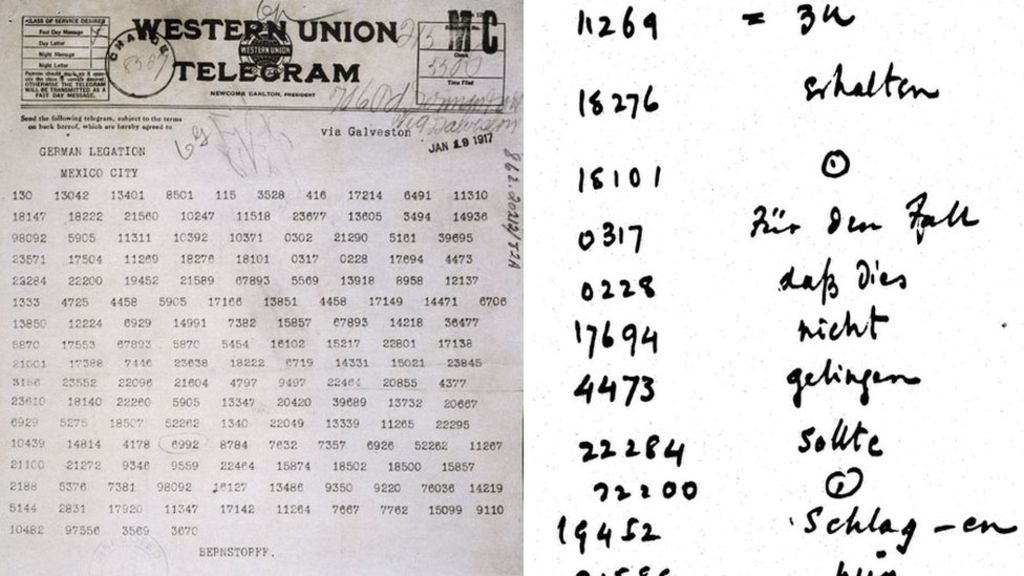 CLASS OF SERVICE DESIRED
Fast Day Message
Day Letter
Night Message
Night Letter
Patrons should mark an X oppo-
site the class of service desired;
OTHERWISE THE TELEGRAM
WILL BE TRANSMITTED AS A
FAST DAY MESSAGE.
CHARGE
WESTERN UNION
WESTERN UNION
TELEGRAM
NEWCOMB CARLTON, PRESIDENT
Time Filed
Send the following telegram, subject to the terms
on back hereof, which are hereby agreed to
via Galveston
JAN 19 1917
GERMAN LEGATION
MEXICO CITY
130 13042 13401 8501 115 3528 416 17214 6491 11310
18147 18222 21560 10247 11518 23677 13605 3494 14936
98092 5905 11311 10392 10371 0302 21290 5161 39695
23571 17504 11269 18276 18101 0317 0228 17694 4473
22284 22200 19452 21589 67893 5569 13918 8958 12137
1333 4725 4458 5905 17166 13851 4458 17149 14471 6706
13850 12224 6929 14991 7382 15857 67893 14218 36477
5870 17553 67893 5870 5454 16102 15217 22801 17138
21001 17388 7446 23638 18222 6719 14331 15021 23845
3156 23552 22096 21604 4797 9497 22464 20855 4377
23610 18140 22260 5905 13347 20420 39689 13732 20667
6929 5275 18507 52262 1340 22049 13339 11265 22295
10439 14814 4178 6992 8784 7632 7357 6926 52262 11267
21100 21272 9346 9559 22464 15874 18502 18500 15857
2188 5376 7381 98092 16127 13486 9350 9220 76036 14219
5144 2831 17920 11347 17142 11264 7667 7762 15099 9110
10482 97556 3569 3670
BERNSTORFF.
11269 = zu
18276 erhalten
18101
0317 Für den Fall
0228 daß dies
17694 nicht
4473 gelingen
22284 sollte
22200
19452 Schlag-en